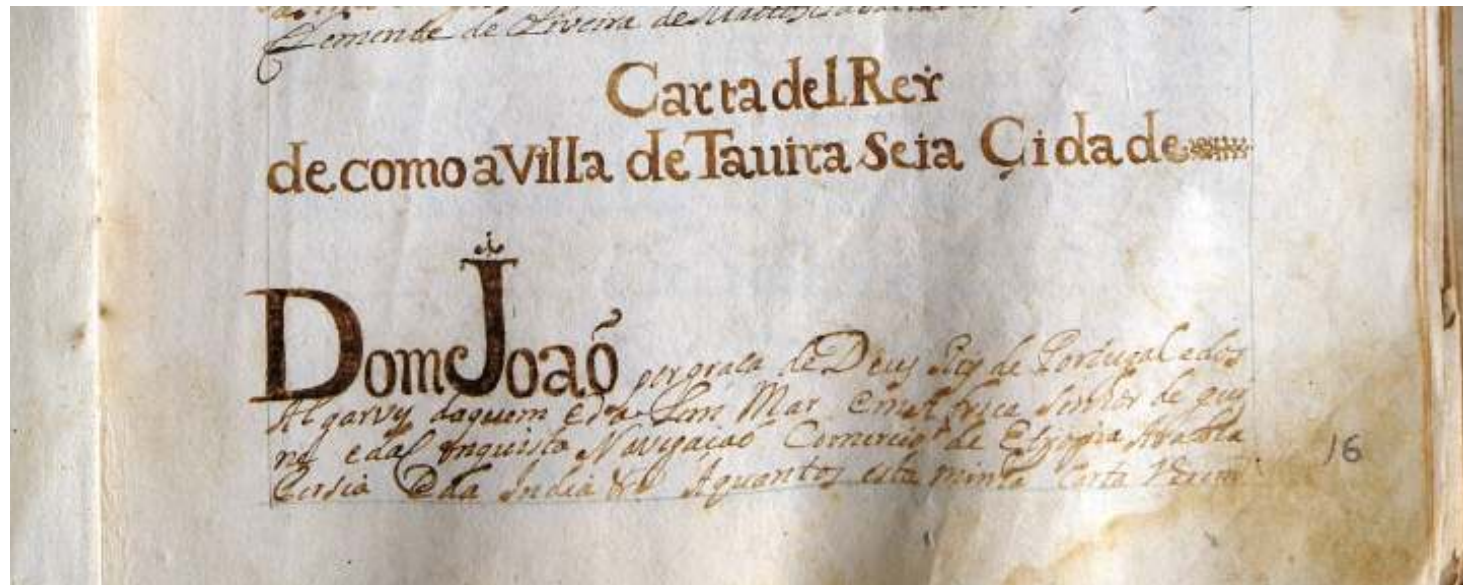 Clemente de Oliveira de Mattos
Carta del Rey
de como a Villa de Tauira Seia Çidade
Dom Joaõ per graca de Deus Rey de Portugal e dos
Algarvs daquem e dalem Mar em Africa Senhor de gui
ne e da Conquista Navegaçaõ Comercio de Ethyopia Arabia
Persia e da India &ª Aquantos esta minha Carta Virem
16